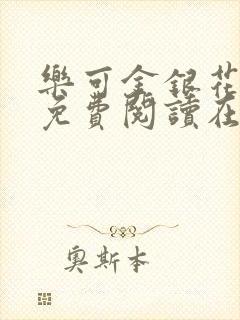 樂可金銀花
免費閱讀在
奧斯本